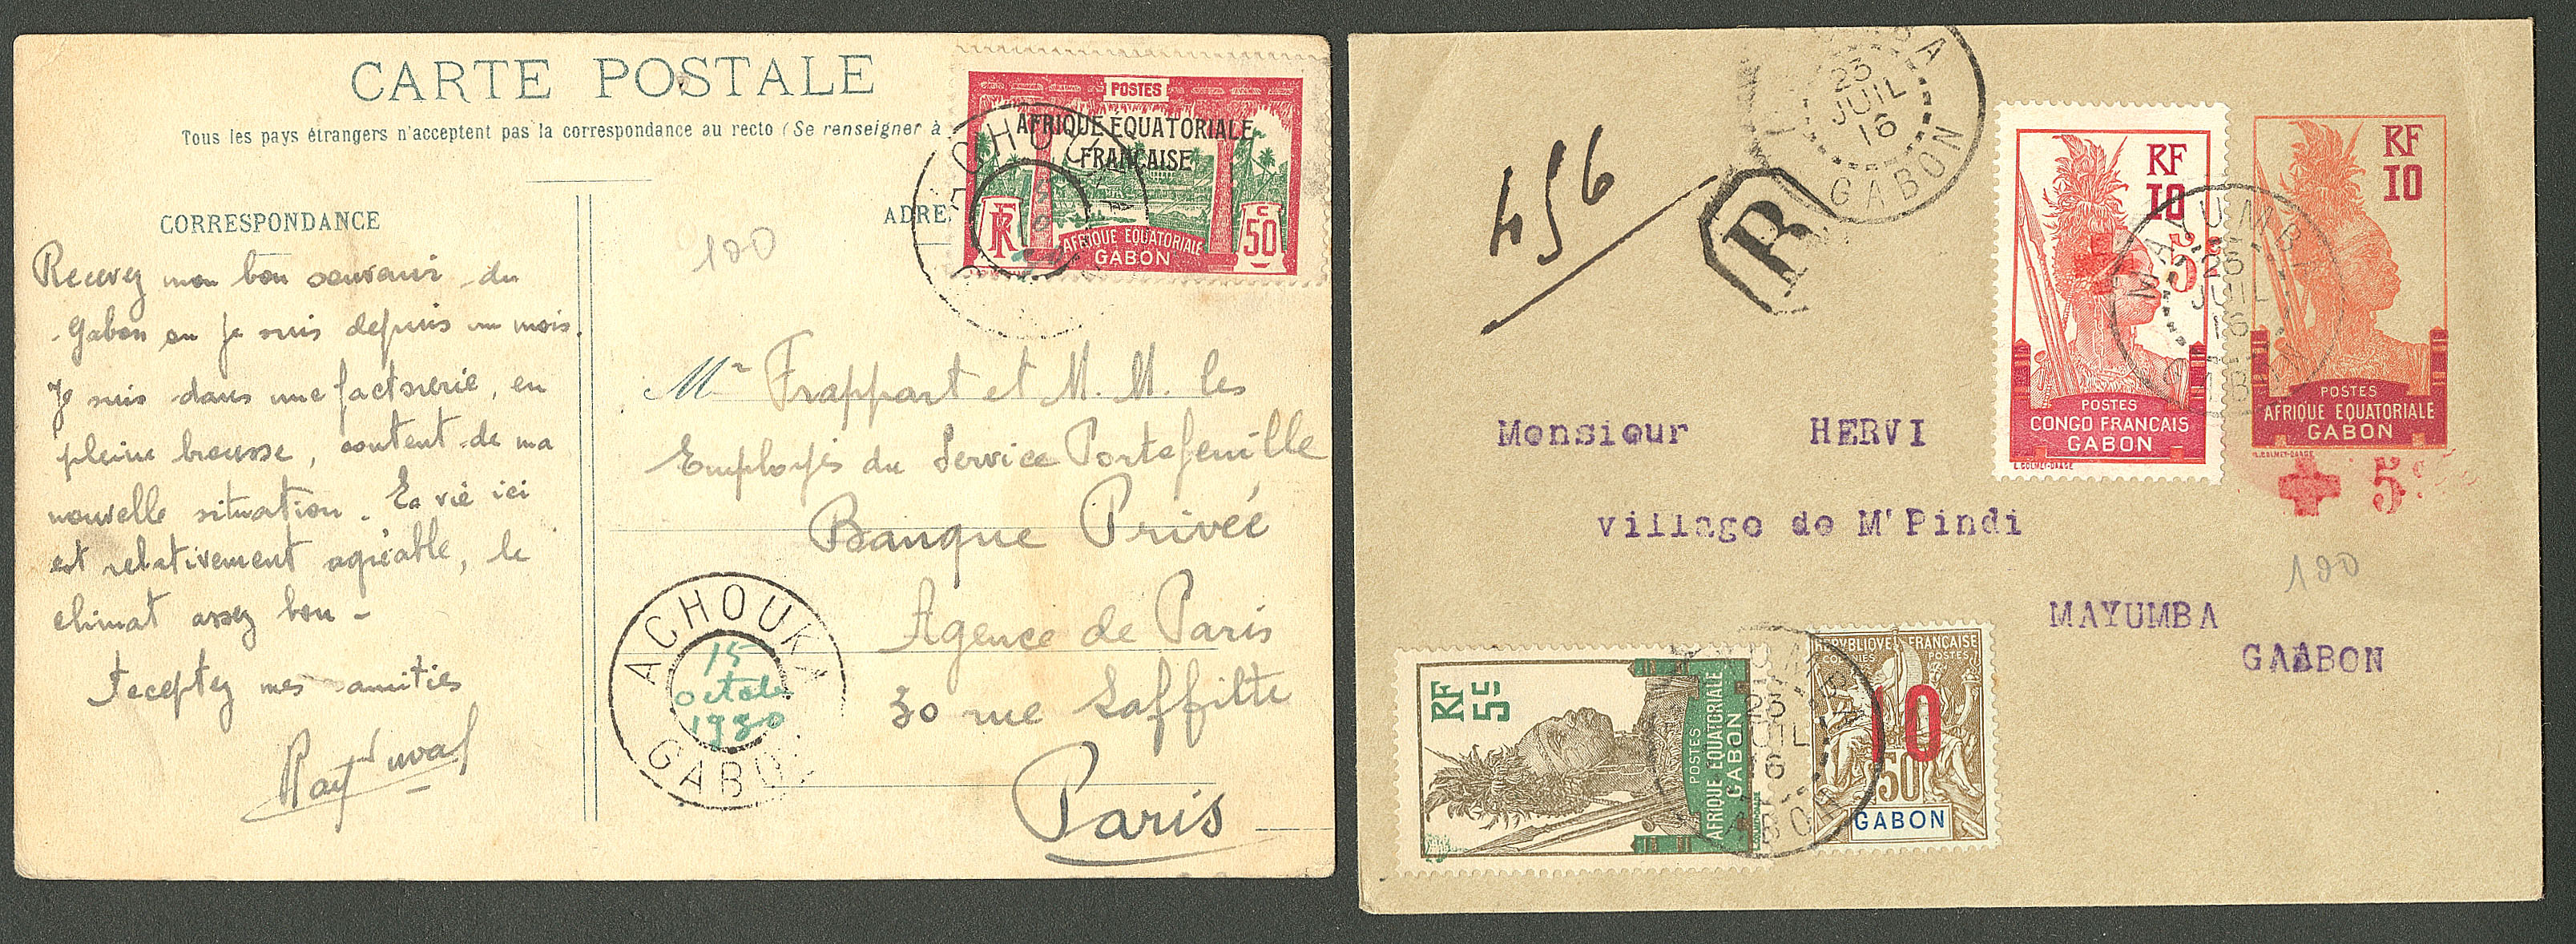 CARTE POSTALE
Tous les pays étrangers n'acceptent pas la correspondance au recto (Se renseigner à
CORRESPONDANCE
ADRE
Recevez mon bon souvenir du
Gabon ou je suis depuis un mois.
Je suis dans une factorerie, en
pleine brousse, content de ma
nouvelle situation. La vie ici
est relativement agréable, le
climat assez bon -
Acceptez mes amitiés
Ray Duval
100
POSTES
AFRIQUE EQUATORIALE
FRANÇAISE
RF
AFRIQUE EQUATORIALE
GABON
C 50
ACHOUKA
Mr Frappart et M. M. les
Employés du Service Portefeuille
Banque Privée
Agence de Paris
30 rue Laffitte
Paris
ACHOUKA
15
octobre
1930
GABON
456
R
23
JUIL
16
GABON
RF
10
5
POSTES
CONGO FRANCAIS
GABON
L.COLMET-DAAGE
RF
10
POSTES
AFRIQUE EQUATORIALE
GABON
L.COLMET-DAAGE
5c
MAYUMBA
23
JUIL
16
GABON
100
Monsieur HERVI
village de M'Pindi
MAYUMBA
GAABON
RF
5c
POSTES
AFRIQUE EQUATORIALE
GABON
REPUBLIQUE FRANCAISE
COLONIES POSTES
10
50
GABON